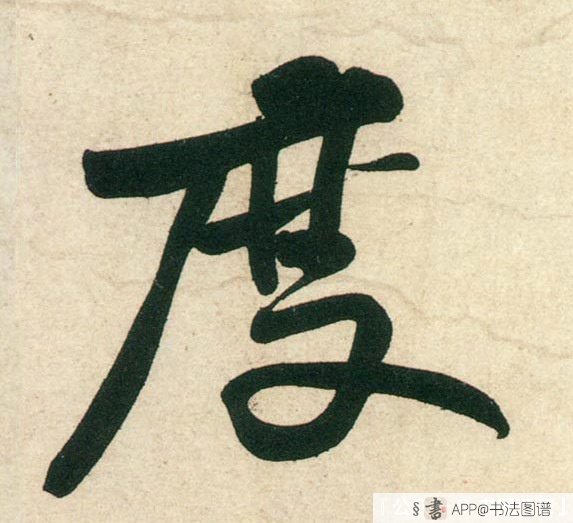 度
§ 書 APP@书法图谱